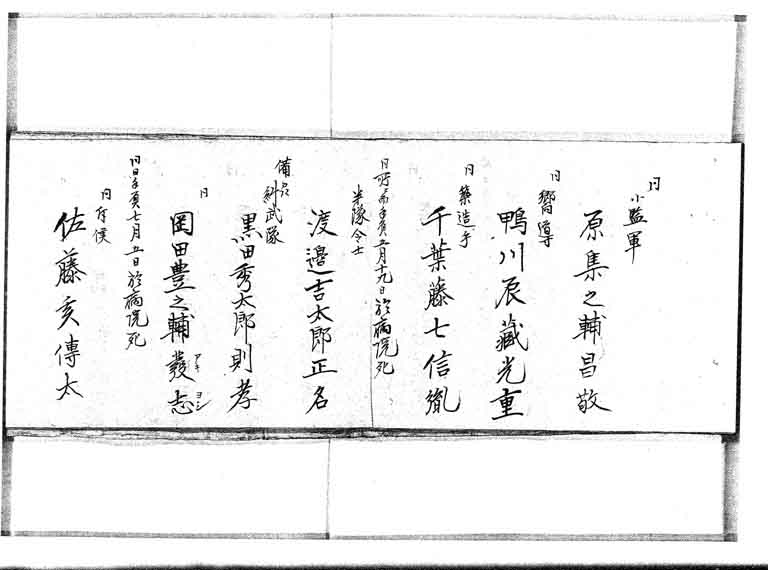 同
小監軍
原集之輔昌敬
同
嚮導
鴨川辰藏光重
同
築造手
千葉藤七信胤
同所
手負五月十九日於病院死
半隊令士
渡邉吉太郎正名
備前
糾武隊
黒田秀太郎則孝
同
岡田豊之輔發志
アキ ヨシ
同日手負七月五日於病院死
同斥候
佐藤亥傳太